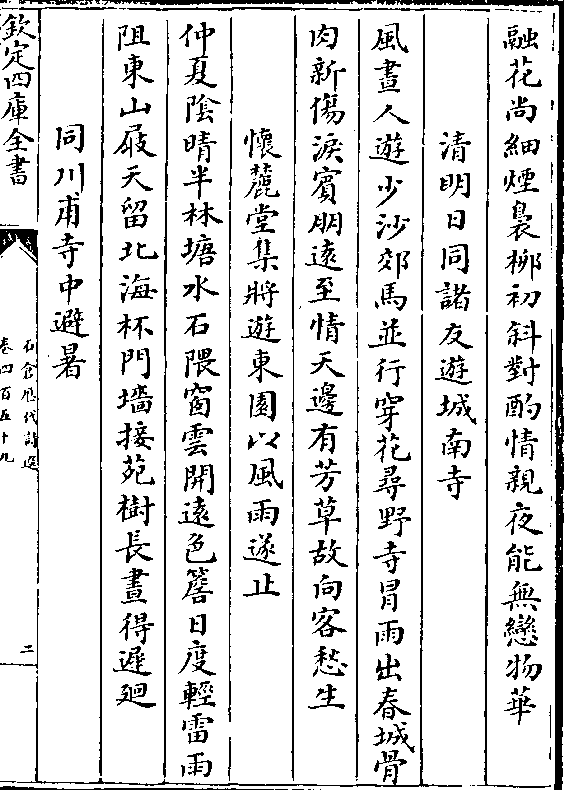 融花尚細煙裊柳初斜對酌情親夜能無戀物華
清明日同諸友遊城南寺
風晝人遊少沙郊馬並行穿花尋野寺冒雨出春城骨
肉新傷淚賓朋遠至情天邊有芳草故向客愁生
懷麓堂集將遊東園以風雨遂止
仲夏陰晴半林塘水石隈窗雲開遠色簷日度輕雷雨
阻東山屐天留北海杯門墻接苑樹長晝得遲廻
同川甫寺中避暑
欽定四庫全書
石倉歷代詩選
卷四百五十九
二